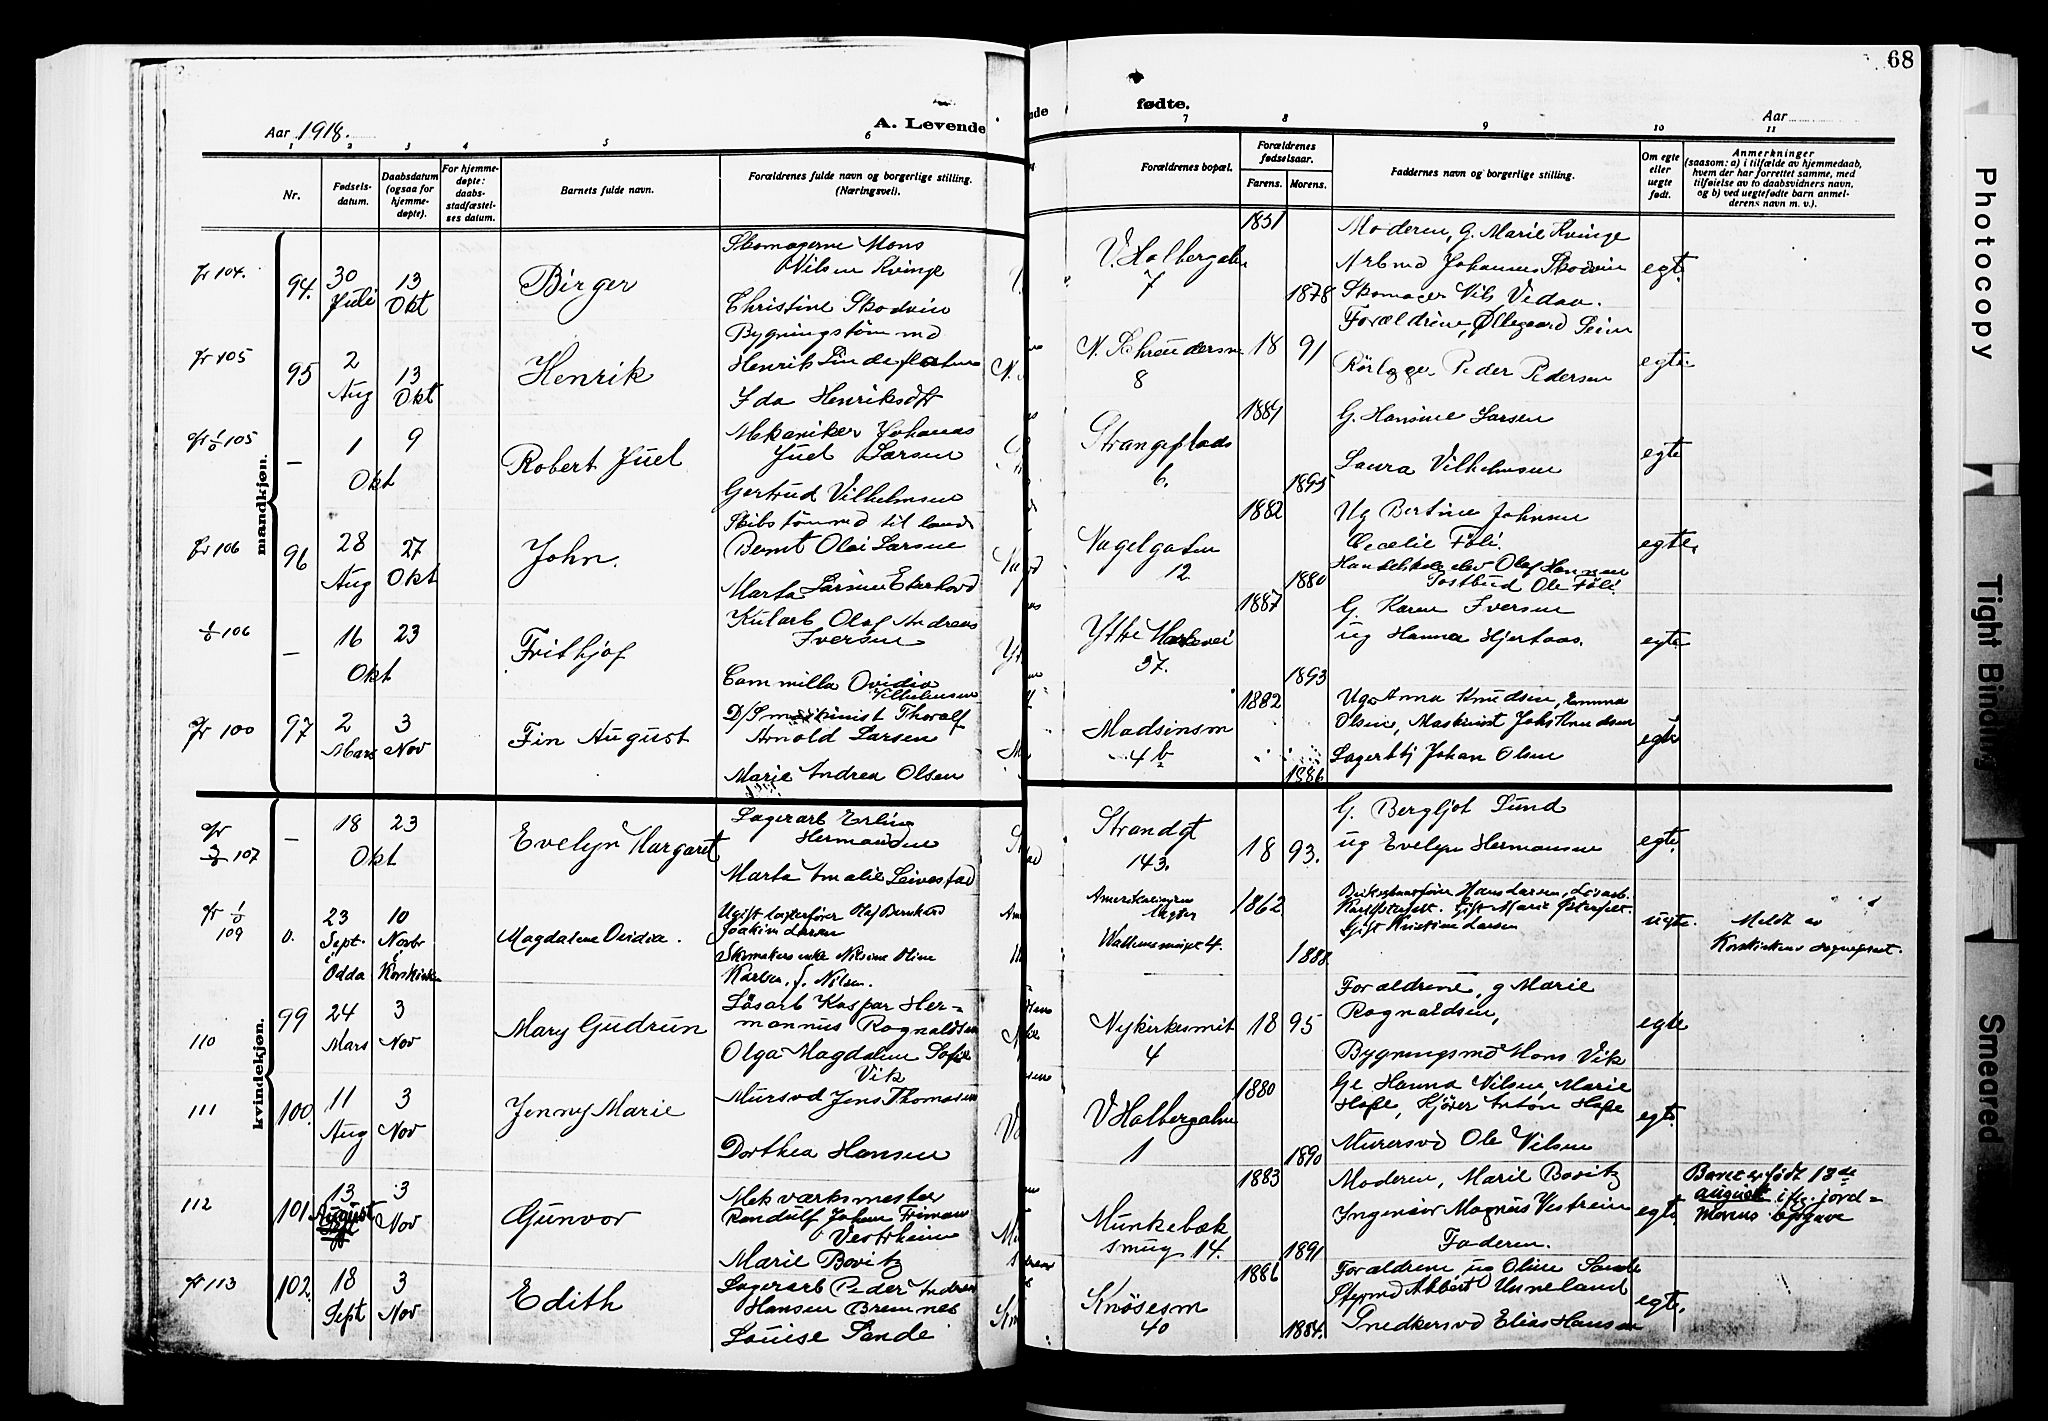 68
Aar 1918.
A. Levende
fødte.
Aar
1 2 3 4 5 6
7 8 9 10 11
Nr.
Fødsels-
datum.
Daabsdatum
(ogsaa for
hjemme-
døpte).
For hjemme-
døpte:
daabs-
stadfæstel-
ses datum.
Barnets fulde navn.
Forældrenes fulde navn og borgerlige stilling.
(Næringsvei).
Forældrenes bopæl.
Forældrenes
fødselsaar.
Farens. Morens.
Faddernes navn og borgerlige stilling.
Om egte
eller
uegte
født.
Anmerkninger
(saasom: a) i tilfælde av hjemmedaab,
hvem der har forrettet samme, med
tilføielse av to daabsvidners navn,
og b) ved uegtefødte barn anmel-
derens navn m. v.).
mandkjøn.
104.
94.
30
Juli
13
Okt
Birger
Skomagerne Mons
Nilsen Kvinge
Christine Skodvin
V. Holbergalm
7
1851
1878
Moderen, G. Marie Kvinge
Arbmd Johannes Skodvin
Skomager Nils Vedaa.
egte
105
95
2
Aug
13
Okt
Henrik
Bygningstømmd
Henrik Lindeflaten
Ida Henriksdtr
8
18 91
Forældrene, Øllegaard Seim
Rørlægger Peder Pedersen
egte
105
–
1
Okt
9
Robert Juel
Mekaniker Johanas
Juel Larsen
Gertrud Vilhelmsen
Strangeplads
6.
1884
1895
G. Hansine Larsen
Laura Vilhelmsen
egte
106
96
28
Aug
27
Okt
John.
Skibstømmd til lands
Bernt Olai Larsen
Marta
Nagelgaten
12
1882
1880
Ug Bertine Johnsen
Cecelie Føli
Olaf Hansen
Postbud Ole Føli
egte.
106
–
16
Okt
23
Frithjof
Kularb Olaf Andreas
Iversen
Cammilla Ovidia
Vilhelmsen
Ytre Markevei
37.
1887
1893
G. Karen Iversen
ug Hanna Hjertaas.
egte
100
97
2
Mars
3
Nov
Fin August
D/S maskinist Thoralf
Arnold Larsen
Marie Andrea Olsen
Madsinsm
4 b
1882
1886
Ug Anna Knudsen, Emma
Olsen, Maskinist Johs Knudsen
Lagerbj Johan Olsen
egte
kvindekjøn.
107
–
18
Okt
23
Evelyn Margaret
Lagerarb Erling
Hermansen
Marta Amalie Leivestad
Strandgt
143.
18 93.
G. Bergljot Lund
ug Evelyn Hermansen
egte.
109
0.
23
Sept.
i
Odda
10
Novbr
i
Korskirken
Magdalene Ovidia.
Ugift Olaf Bernhard
Joakim Larsen
Skomakers enke Nilsine Oline
Karlsen, f. Nilsen.
1862
1888
Hans Larsen,
Gift Marie
Gift Kristine Larsen
uegte.
Meldt av
Korskirkens sogneprest.
110
99
24
Mars
3
Nov
Mary Gudrun
Løsarb Kaspar Her=
mannus Ragnaldsen
Olga Magdalene Sofie
Vik
Nykirkesmit
4
18 95
Forældrene, g Marie
Ragnaldsen,
Bygningsmd Mons Vik
egte
111
100.
11
Aug
3
Nov
Jenny Marie
Mursvd Jens Thomassen
Dorthea Hansen
V Holbergalm
1
1880
1890
G Hanna Nilsen, Marie
Hope, Kjører Anton Hope
Murersvd Ole Nilsen
egte.
112
101
13
August
3
Nov
Gunvor
Mek værksmester
Randulf Johan Friman
Vestrheim
Marie Bovitz
Munkebæk
smug 14.
1883
1891
Moderen, Marie Bovitz
Ingeniør Magnus Vestrheim
Faderen.
egte
Barnet er født 13de
august iflg. jord=
morens opgave
113
102.
18
Sept
3
Nov
Edith
Lagerarb Peder Andreas
Hansen Bremnes
Louise Sande
Knøsesm
40
1886
1884.
Forældrene ug Oline Sande
Styrmd Albert Unneland
Snedkersvd Elias Hansen
egte.
Photocopy
Tight Binding
Smeared